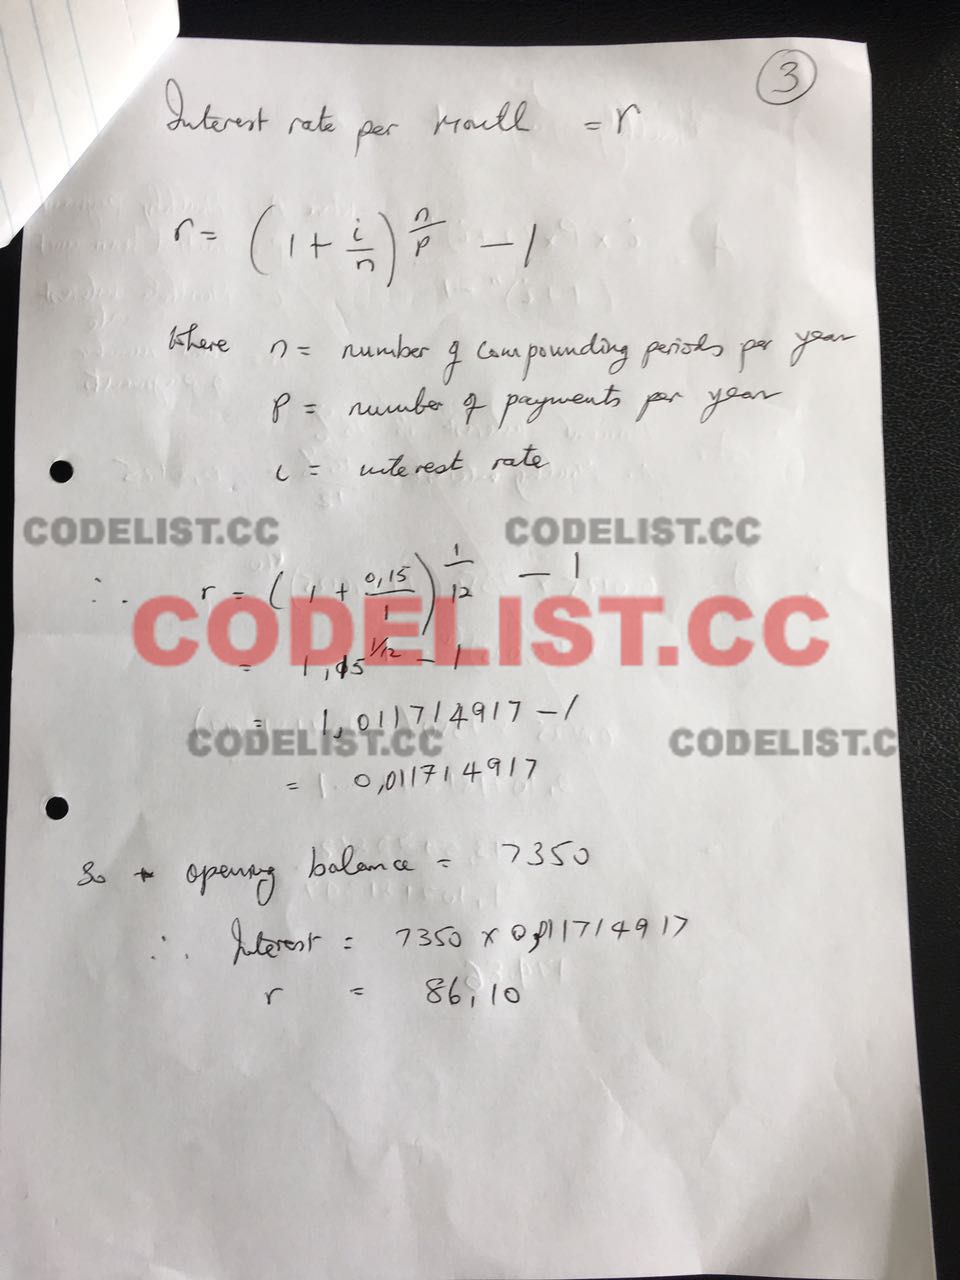 3
Interest rate per month = r
r = (1 + i/n)^(n/p) - 1
Where n = number of compounding periods per year
p = number of payments per year
i = interest rate
CODELIST.CC CODELIST.CC
∴ r = (1 + 0,15/1)^(1/12) - 1
CODELIST.CC
= 1,15^(1/12) - 1
= 1,011714917 - 1
CODELIST.CC CODELIST.C
= 0,011714917
So opening balance = 7350
∴ Interest = 7350 x 0,011714917
r = 86,10